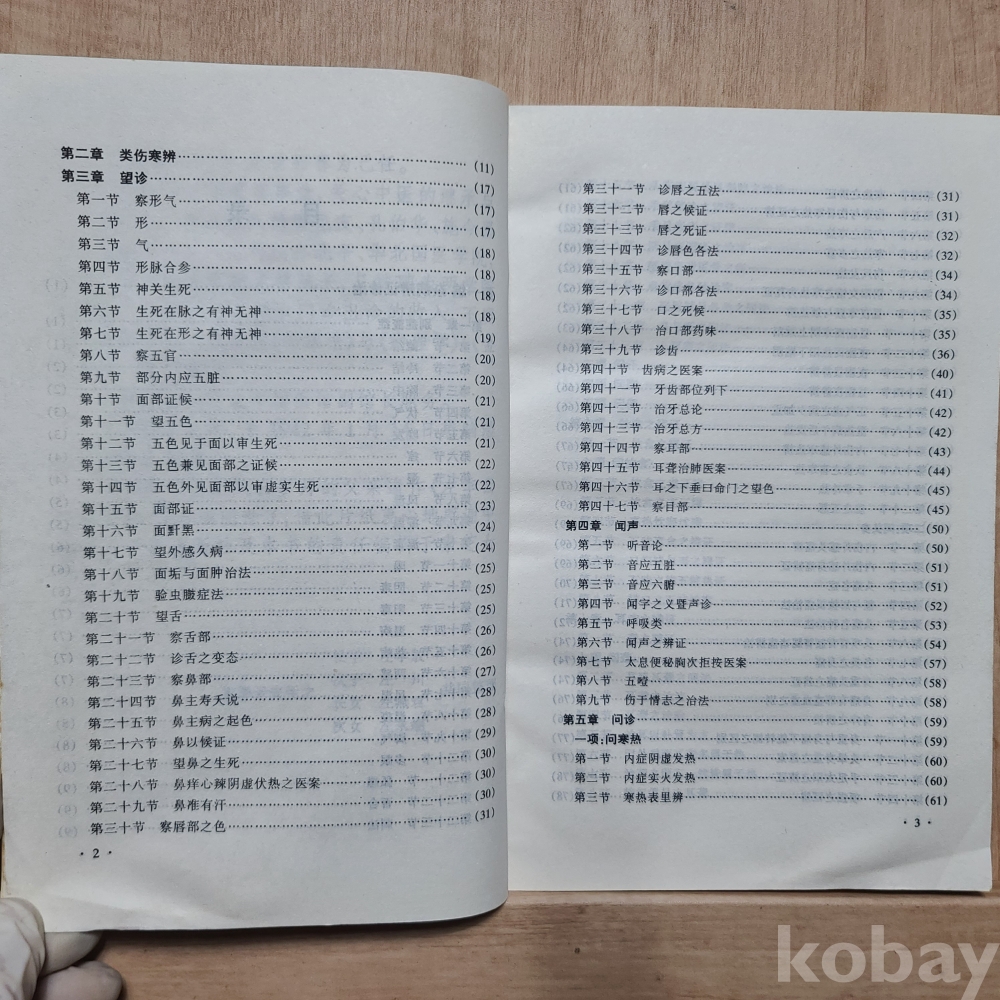 第二章 类伤寒辨…………(11)
第三章 望诊…………(17)
第一节 察形气…………(17)
第二节 形…………(17)
第三节 气…………(18)
第四节 形脉合参…………(18)
第五节 神关生死…………(18)
第六节 生死在脉之有神无神…………(18)
第七节 生死在形之有神无神…………(19)
第八节 察五官…………(20)
第九节 部分内应五脏…………(20)
第十节 面部证候…………(21)
第十一节 望五色…………(21)
第十二节 五色见于面以审生死…………(21)
第十三节 五色兼见面部之证候…………(22)
第十四节 五色外见面部以审虚实生死…………(22)
第十五节 面部证…………(23)
第十六节 面黚黑…………(24)
第十七节 望外感久病…………(24)
第十八节 面垢与面肿治法…………(25)
第十九节 验虫臌症法…………(25)
第二十节 望舌…………(25)
第二十一节 察舌部…………(26)
第二十二节 诊舌之变态…………(26)
第二十三节 察鼻部…………(27)
第二十四节 鼻主寿夭说…………(28)
第二十五节 鼻主病之起色…………(28)
第二十六节 鼻以候证…………(29)
第二十七节 望鼻之生死…………(30)
第二十八节 鼻痒心辣阴虚伏热之医案…………(30)
第二十九节 鼻准有汗…………(30)
第三十节 察唇部之色…………(31)
· 2 ·
第三十一节 诊唇之五法…………(31)
第三十二节 唇之候证…………(31)
第三十三节 唇之死证…………(32)
第三十四节 诊唇色各法…………(32)
第三十五节 察口部…………(34)
第三十六节 诊口部各法…………(34)
第三十七节 口之死候…………(35)
第三十八节 治口部药味…………(35)
第三十九节 诊齿…………(36)
第四十节 齿病之医案…………(40)
第四十一节 牙齿部位列下…………(41)
第四十二节 治牙总论…………(42)
第四十三节 治牙总方…………(42)
第四十四节 察耳部…………(43)
第四十五节 耳聋治肺医案…………(44)
第四十六节 耳之下垂曰命门之望色…………(45)
第四十七节 察目部…………(45)
第四章 闻声…………(50)
第一节 听音论…………(50)
第二节 音应五脏…………(51)
第三节 音应六腑…………(51)
第四节 闻字之义暨声诊…………(52)
第五节 呼吸类…………(53)
第六节 闻声之辨证…………(54)
第七节 太息便秘胸次拒按医案…………(57)
第八节 五噎…………(58)
第九节 伤于情志之治法…………(58)
第五章 问诊…………(59)
一项:问寒热…………(59)
第一节 内症阴虚发热…………(60)
第二节 内症实火发热…………(60)
第三节 寒热表里辨…………(61)
· 3 ·
kobay